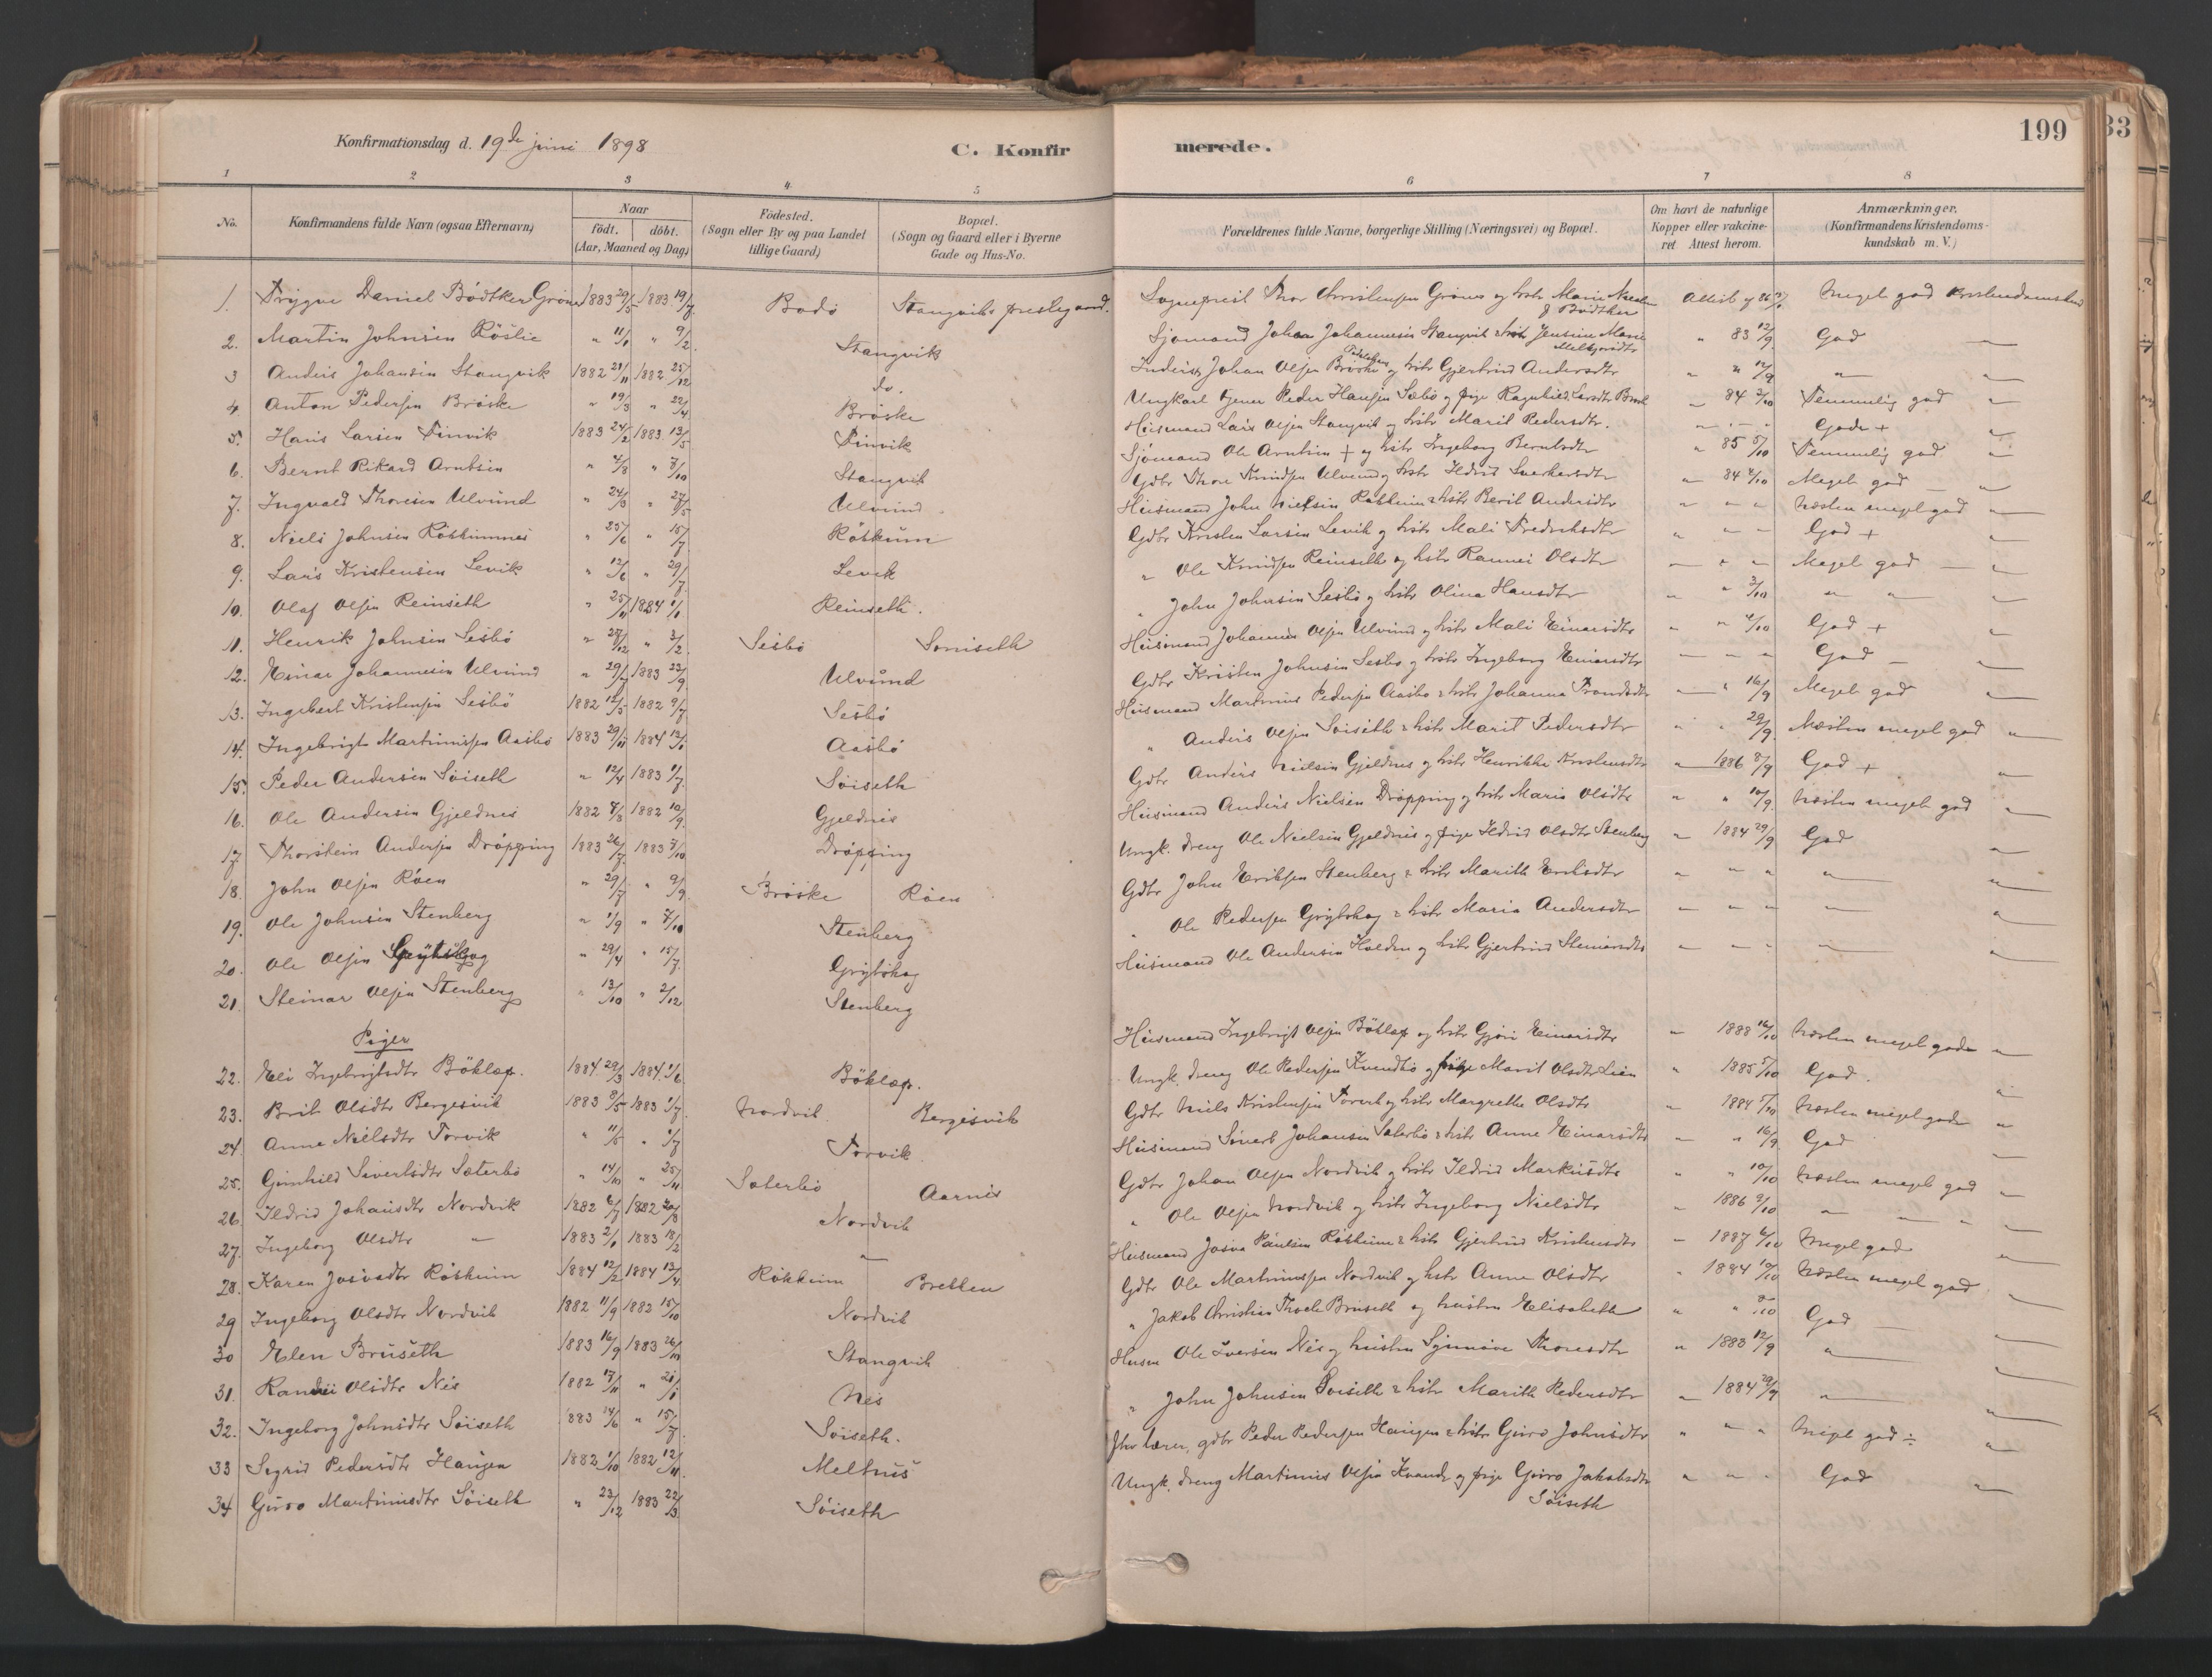 199
33
Konfirmationsdag d. 19de juni 1898
C. Konfirmerede.
1 2 3 4 5 6 7 8
No. Konfirmandens fulde Navn (ogsaa Efternavn) Naar födt. döbt. (Aar, Maaned og Dag) Födested. (Sogn eller By og paa Landet tillige Gaard) Bopæl. (Sogn og Gaard eller i Byerne Gade og Hus-No. Forældrenes fulde Navne, borgerlige Stilling (Næringsvei) og Bopæl. Om havt de naturlige Kopper eller vakcineret Attest herom. Anmærkninger. (Konfirmandens Kristendomskundskab m. V.)
1. Trygve Daniel Bödtker Gröner 1883 29/5 1883 19/7 Bodö Stangviks prestegaard. Sogneprest Thor Christensen Gröner og hstr Marie Bödtker Attest Meget god
2. Martin Johnsen Röslie " 11/1 " 9/2 Stangvik Sjömand Johan Johannesen Stangvik & hstr Jensine Marie " 83 12/9 God
3 Anders Johansen Stangvik 1882 21/11 1882 25/12 do. Inderst Johan Olsen Bröske og hstr Gjertrud Andersdtr " " 12/9 "
4. Anton Pedersen Bröske " 19/3 " 22/4 Bröske Ungkarl tjener Peder Hansen Sæbö og pige Ragnhild Larsdtr " 84 2/10 Temmelig god
5. Hans Larsen Tinvik 1883 24/2 1883 13/5 Tinvik Husmand Lars Olsen Stangvik og hstr Marit Pedersdtr. " - " God +
6. Bernt Rikard Arntsen " 4/8 " 7/10 Stangvik Sjömand Ole Arntsen + og hstr Ingeborg Berntsdtr " 85 5/10 Temmelig god
7. Ingvald Thoresen Ulvund " 24/3 " 27/5 Ulvund Gdbr Thore Knudsen Ulvund og hstr Ildrid Sverkersdtr " 84 2/10 Meget god
8. Niels Johnsen Röskumnes " 25/6 " 15/7 Röskum Husmand John Nielsen Röskum & hstr Berit Andersdtr " " " Næsten meget god
9. Lars Kristensen Levik " 12/6 " 29/7 Levik Gdbr Kristen Larsen Levik og hstr Mali Fredriksdtr " " " God +
10. Olaf Olsen Reinseth " 25/11 1884 1/1 Reinseth. " Ole Knudsen Reinseth og hstr Rannei Olsdtr " " " Meget god
11. Henrik Johnsen Sesbö " 27/12 " 3/2 Sesbö Sorriseth " John Johnsen Sesbö og hstr Olina Hansdtr " " 3/10 " "
12. Einar Johannesen Ulvund " 29/7 1883 23/9 Ulvund Husmand Johannes Olsen Ulvund og hstr Mali Einarsdtr " " 4/10 God +
13. Ingebert Kristensen Sesbö 1882 12/5 1882 9/7 Sesbö Gdbr Kristen Johnsen Sesbö og hstr Ingeborg Einarsdtr " " " God
14. Ingebrigt Martinussen Aasbö 1883 29/11 1884 13/1 Aasbö Husmand Martinus Pedersen Aasbö & hstr Johanna Trondsdtr " " 16/9 Meget god
15. Peder Andersen Söiseth " 12/4 1883 1/7 Söiseth " Anders Olsen Söiseth & hstr Marit Pedersdtr " " 29/9 Næsten meget god
16. Ole Andersen Gjeldnes 1882 7/8 1882 10/9 Gjeldnes Gdbr Anders Nielsen Gjeldnes og hstr Henrikke Kristensdtr " 1886 8/9 God +
17. Thorstein Andersen Dröpping 1883 26/7 1883 7/10 Dröpping Husmand Anders Nielsen Dröpping og hstr Marie Olsdtr " " 10/9 Næsten meget god
18. John Olsen Röen " 29/7 " 9/9 Bröske Röen Ungk. dreng Ole Nielsen Gjeldnes og pige Ildrid Olsdtr Stenberg " 1884 29/9 God
19. Ole Johnsen Stenberg " 1/9 " 7/10 Stenberg Gdbr John Eriksen Stenberg & hstr Marith Eriksdtr " " " "
20. Ole Olsen Grytskog " 29/4 " 15/7 Grytskog " Ole Pedersen Grytskog & hstr Maria Andersdtr " " " "
21. Steinar Olsen Stenberg " 13/10 " 2/12 Stenberg Husmand Ole Andersen Halden og hstr Gjertrud Steinarsdtr " " " "
Piger
22. Eli Ingebrigtsdtr Böklep. 1884 29/3 1884 1/6 Böklep. Husmand Ingebrigt Olsen Böklep og hstr Gjöri Einarsdtr " 1888 16/10 Næsten meget god
23. Brit Olsdtr Bergesvik 1883 8/5 1883 1/7 Nordvik Bergesvik Ungk. dreng Ole Pedersen Kvendbö og pige Marit Olsdtr Lien " 1885 5/10 God.
24. Anne Nielsdtr Torvik " 11/5 " 1/7 Torvik Gdbr Niels Kristensen Torvik og hstr Margrethe Olsdtr " 1884 5/10 Næsten meget god
25. Gunhild Sivertsdtr Sæterbö " 14/10 " 25/11 Sæterbö Aarnes Husmand Sivert Johansen Sæterbö & hstr Anne Einarsdtr " " 16/9 God
26. Ildrid Johansdtr Nordvik 1882 6/7 1882 20/8 Nordvik Gdbr Johan Olsen Nordvik og hstr Ildrid Markusdtr " " 10/10 Næsten meget god
27. Ingeborg Olsdtr " 1883 2/1 1883 18/2 " " Ole Olsen Nordvik og hstr Ingeborg Nielsdtr " 1886 9/10 " " "
28. Karen Josvadtr Röskum 1884 12/2 1884 13/4 Röskum Bretten Husmand Josva Paulsen Röskum & hstr Gjertrud Kristensdtr " 1887 6/10 Meget god
29 Ingeborg Olsdtr Nordvik 1882 11/9 1882 15/10 Nordvik Gdbr Ole Martinussen Nordvik og hstr Anne Olsdtr " 1884 10/10 Næsten meget god
30 Elen Bruseth 1883 16/9 1883 26/11 Stangvik " Jakob Christian Bruseth og hustru Elisabeth " " God
31. Randi Olsdtr Nes 1882 17/11 " 21/1 Nes Husm Ole Iversen Nes og hustru Synnöve Thoresdtr " 1883 12/9 "
32. Ingeborg Johnsdtr Söiseth 1883 14/6 " 15/7 Söiseth. " John Johnsen Söiseth & hstr Marith Pedersdtr " 1884 29/9 "
33 Sigrid Pedersdtr Haugen 1882 1/10 1882 12/11 Melhus lærer, gdbr Peder Pedersen Haugen & hstr Guro Johnsdtr " " " Meget god ÷
34 Guro Martinusdtr Söiseth " 23/12 1883 22/3 Söiseth Ungk. dreng Martinus Olsen Kvande og pige Guro Jakobsdtr Söiseth " " " God